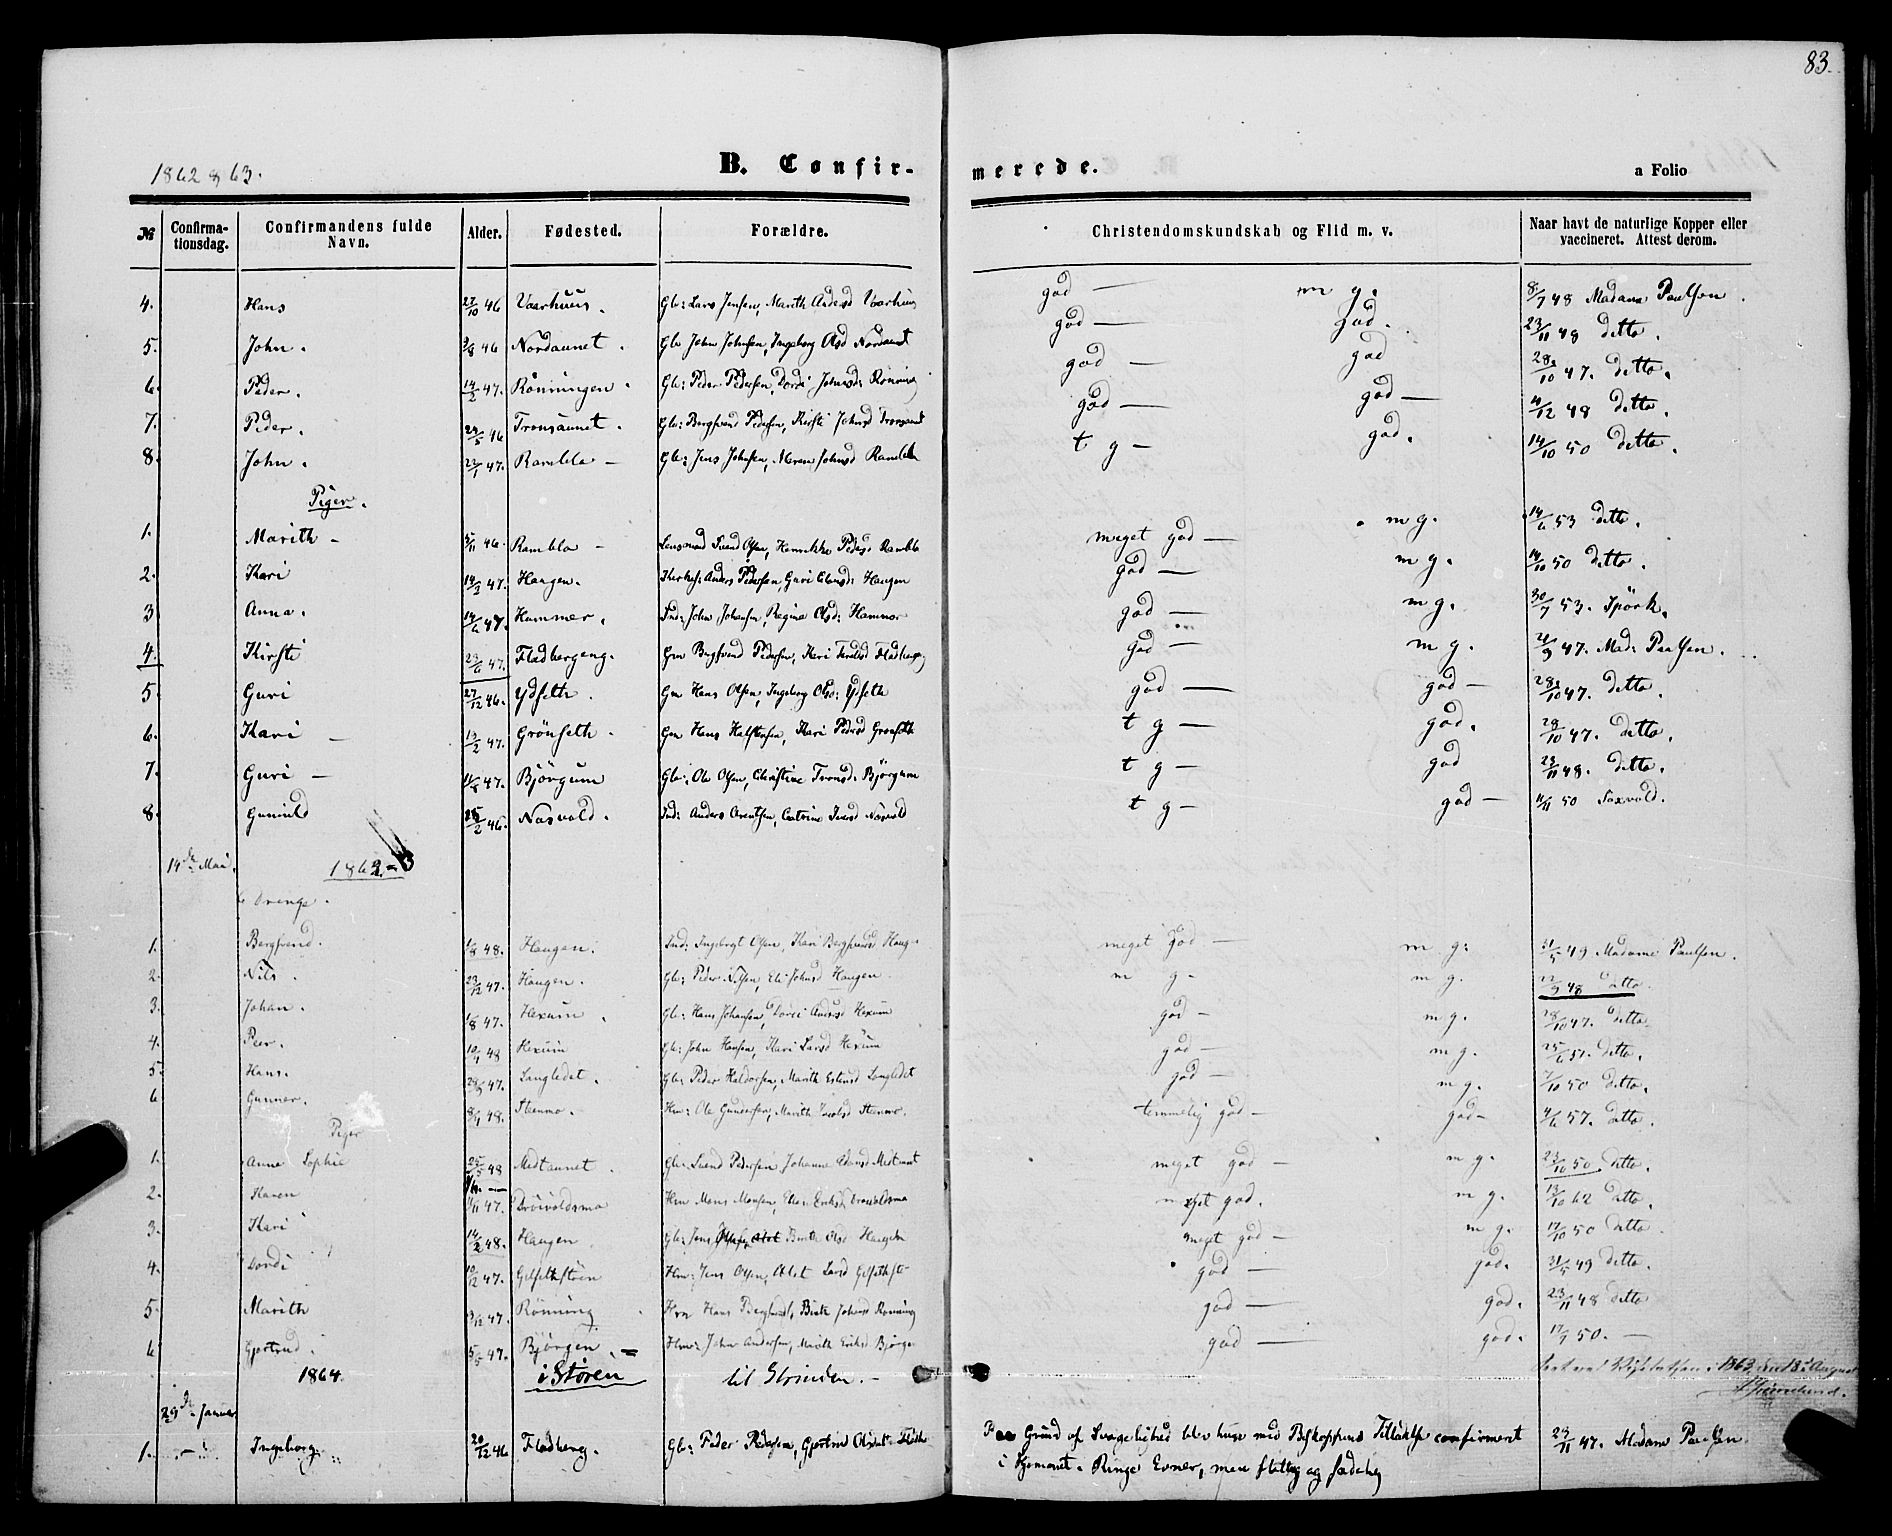 83.
1862 & 63.
B. Confirmerede.
a Folio
№ Confirmationsdag. Confirmandens fulde Navn. Alder. Fødested. Forældre. Christendomskundskab og Flid m. v. Naar havt de naturlige Kopper eller vaccineret. Attest derom.
4. Hans 27/10 46 Vaarhuus. Gb: Lars Jensen, Marith Andersd Vaarhuus god — m g. 8/7 48 Madame Paulsen.
5. John. 46 Nordaunet. Gb John Johnsen, Ingeborg Olsd Nordaunet god — god. 23/11 48 ditto.
6. Peder. 14/2 47. Rönningen. Gb: Peder Pedersen, Dordi Johnsd: Rönning god — god 28/10 47. ditto.
7. Peder. 24/5 46 Tronsaunet. Gb: Bergsvend Pedersen, Kirsti Johnsd Tronsaunet god — god — /12 48 ditto.
8. John. 22/1 47. Rambla — Gb: Jens Johnsen, Maren Johnsd Rambla t g — god. 14/10 50 ditto.
Piger.
1. Marith — /11 46. Rambla — Lensmand Svend Olsen, Henrikke Pedersd Rambla meget god — m g. 14/6 53 ditto.
2. Kari 14/2 47. Haugen. Anders Pedersen, Guri Haugen god — m g. 14/10 50 ditto.
3. Anna. 14/6 47. Hammer. Ind: John Johansen, Regine Olsd: Hammer god — m g. 30/7 53. Spörk.
4. Kirsti 23/6 47. Fladbergeng. Gm Bergsvend Pedersen, Kari god — m g. 21/9 47. Mad: Paulsen.
5. Guri 27/12 46. Ydseth. Gm Hans Olsen, Ingeborg Olsd: Ydseth god — god — 28/10 47. ditto.
6. Kari — 13/2 47. Grönseth. Gm Hans Halstensen, Kari Pedersd Grönseth t g — god. 28/10 47. ditto.
7. Guri — 11/8 47. Björgum Gb: Ole Olsen, Christine Tronsd: Björgum t g — god 23/11 48. ditto.
8. Gunild 26/2 46. Nasvold. Ind: Anders Arentsen, Catrine Iversd Nasvold t g — god — 11/11 50
14de Mai. 1863
Drenge.
1. Bergsvend. 48. Haugen. Ind: Ingebrigt Olsen, Kari Bergsvendsd Haugen meget god — m g. 21/5 49 Madame Paulsen.
2. Nils. 23/12 47. Haugen. Gb: Peder Nilsen, Eli Johnsd Haugen m g. m g. 22/9 48 ditto.
3. Johan. 1/8 47. Hexum. Gb: Hans Johansen, Dordi Andersd Hexum god — m g. 28/10 47. ditto.
4. Peer. 10/1 48 Hexum Gb: John Hansen, Kari Larsd Hexum god — m g. 25/6 57. ditto.
5. Hans. 28/9 47. Langledet. Gb: Peder Haldorsen, Marith Estensd Langledet god — m g. 7/10 50 ditto.
6 Gunner. 8/1 48. Steenmo. Hm: Ole Gundersen, Marith Jacobsd Steenmo. temmelig god — god — 4/6 57. ditto.
Piger
1. Anne Sophie 25/5 48 Midtaunet. Gb: Svend Pedersen Johanne Midtaunet meget god — m g. 23/10 50. ditto.
2. Karen /11 47. Dröivoldsmo Hm Mons Monsen, Dröivoldsmo meget god. m g. 13/10 62 ditto.
3. Kari 14/2 48. Haugen Gb: Jens Olsd Haugen meget god — m g. 17/10 50 ditto.
4. Dordi 10/12 47. Gylsethstöen Hm: Jens Olsen, Larsd god — god. 21/5 49 ditto.
5. Marith /12 47. Rönning Hm Hans Johnsd Rönning god — god. 23/11 48 ditto
6 Gjertrud. 5/5 47. Björgen. — Hm: John Andersen, Marith Eriksd Björgen god — god. 17/9 50. —
1864. i Stören til Strinden. — 1863 den 13de August
29de Januar
1. Ingeborg. 20/12 46 Fladberg. Gb: Peder Pedersen, Gjertrud Olsdat: Grund af Svagelighed blev hun med Biskoppens Tilladelse confirmeret 23/11 47. Madam Paulsen.
i Hjemmet. Ringe Evner, men flittig og sædelig